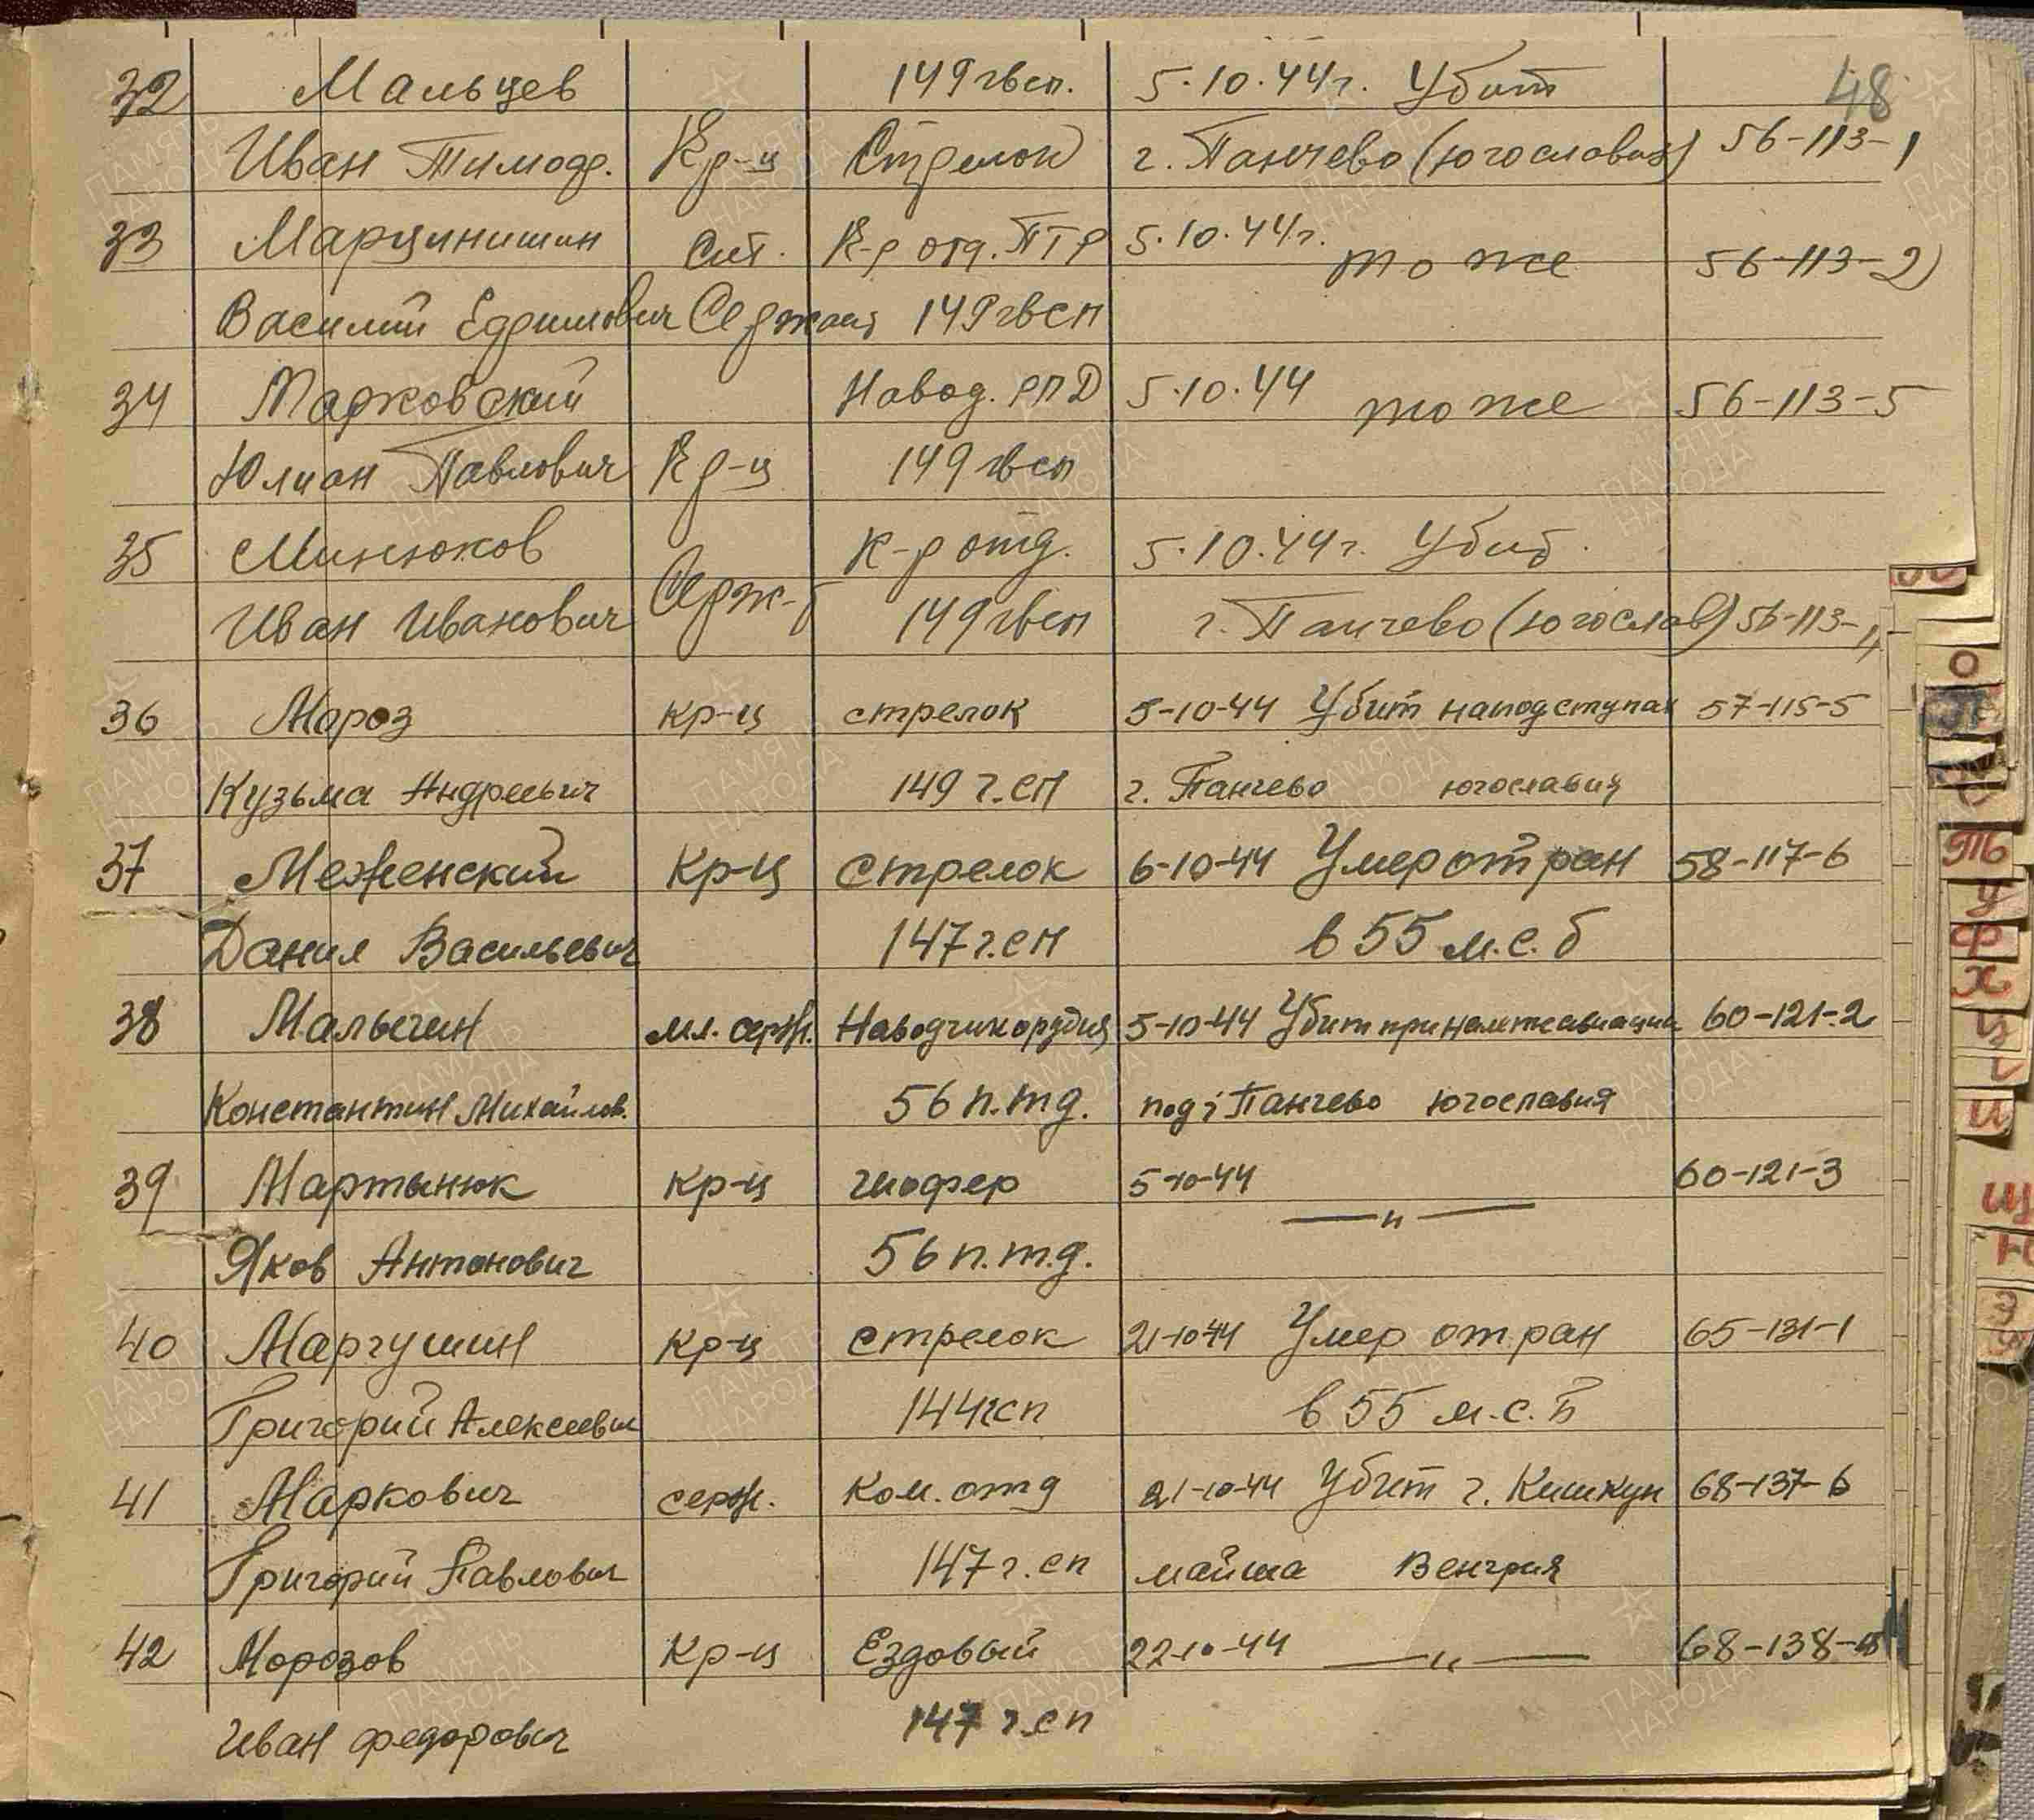 48
32 Мальцев 149 гвсп. 5.10.44г. Убит
Иван Тимоф. Кр-ц Стрелок г. Панчево (югославия) 56-113-1
33 Марцинишин Ст. К-р отд. ПТР 5.10.44г. то же 56-113-2
Василий Ефимович Сержант 149 гвсп
34 Марковский Навод. РПД 5.10.44 то же 56-113-5
Юлиан Павлович Кр-ц 149 гвсп
35 Минюков к-р отд. 5.10.44г. Убит.
Иван Иванович Серж-т 149 гвсп г. Панчево (югослав) 56-113-11
36 Мороз кр-ц стрелок 5-10-44 Убит на подступах 57-115-5
Кузьма Андреевич 149 г.сп г. Панчево югославия
37 Меженский Кр-ц стрелок 6-10-44 Умер от ран 58-117-6
Данил Васильевич 147 г.сп в 55 м.с.б
38 Малыгин мл. серж. Наводчик орудия 5-10-44 Убит при налете авиации 60-121-2
Константин Михайлов. 56 п.т.д. под г Панчево югославия
39 Мартынюк кр-ц шофер 5-10-44 —"— 60-121-3
Яков Антонович 56 п.т.д.
40 Маргушин кр-ц стрелок 21-10-44 Умер от ран 65-131-1
Григорий Алексеевич 144 гсп в 55 м.с.Б
41 Маркович серж. Ком. отд 21-10-44 Убит г. Кишкун 68-137-6
Григорий Павлович 147 г.сп майша Венгрия
42 Морозов Кр-ц Ездовый 22-10-44 —"— 68-138-
Иван федорович 147 г.сп
О
Т
У
Ф
Х
Ц
Щ
Ю
Э
Я
ПАМЯТЬ НАРОДА